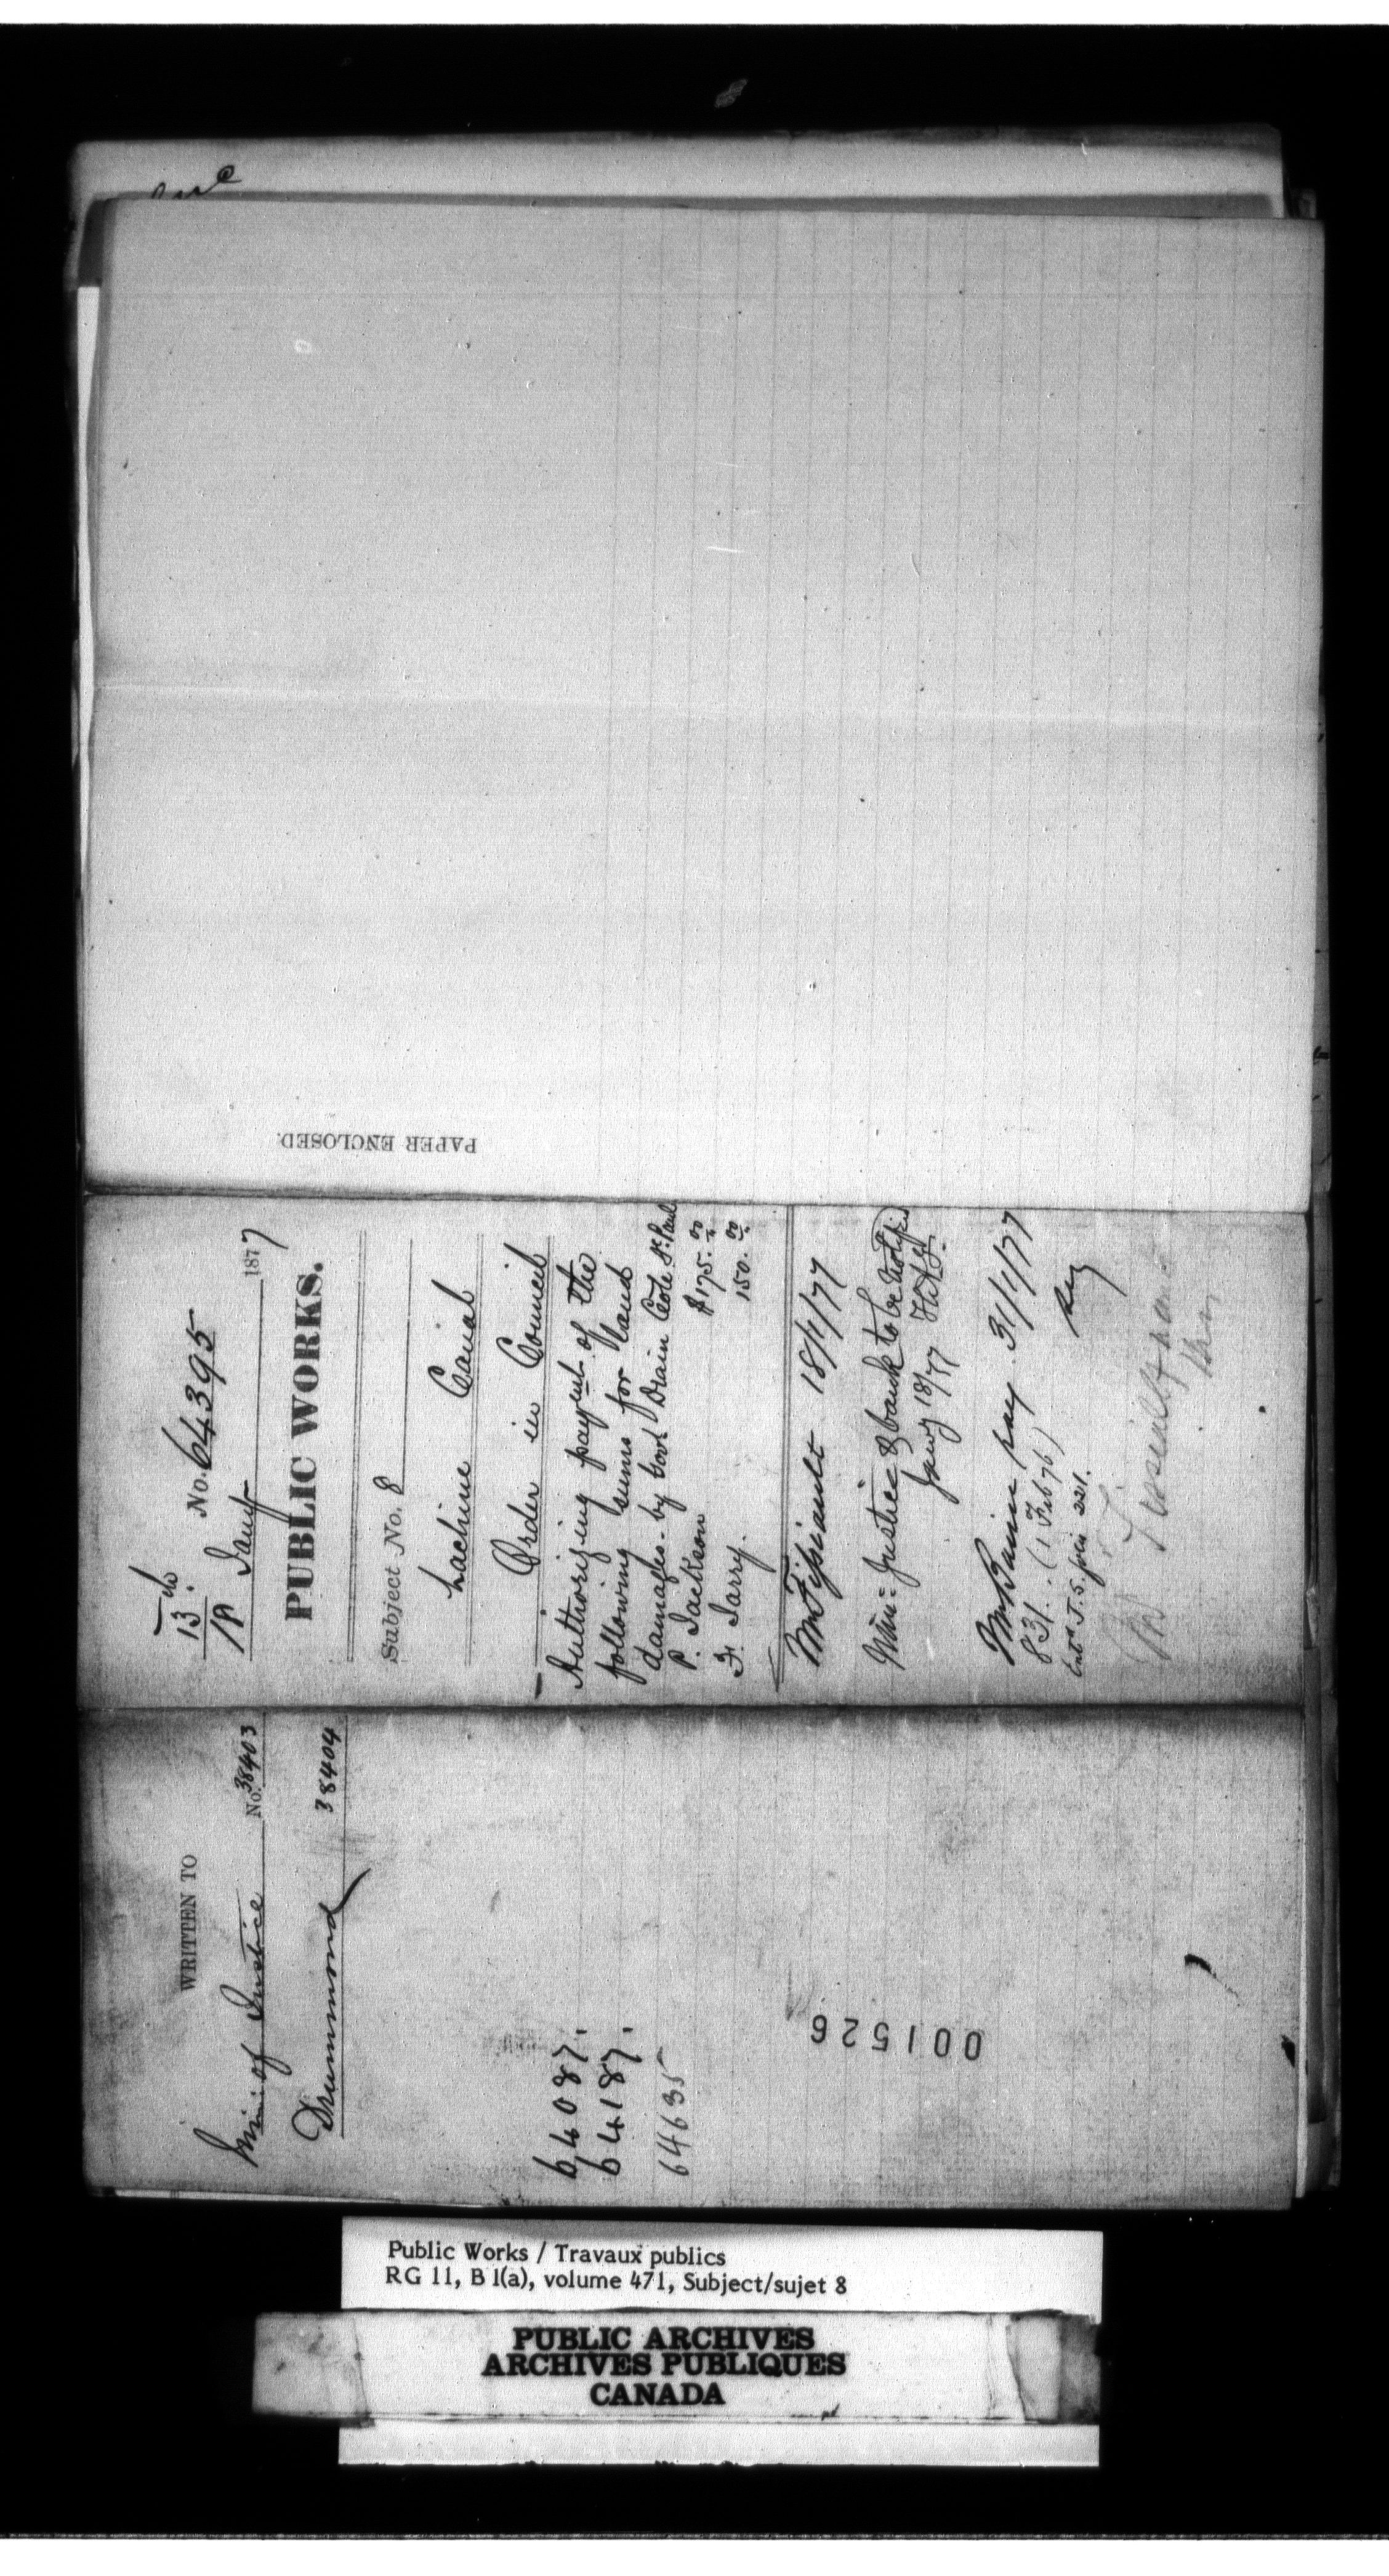 PAPER ENCLOSED.
13
No. 64395
18 Jany 1877
PUBLIC WORKS.
Subject No. 8
Lachine Canal
Order in Council
Authorizing payent of the
following sums for land
damages by Govt Drain Cote St. Paul
P. Jackson $175.00
F. Jarry. 150.00
18/1/77
Min: Justice & bank to be notified
Jany 18/77
Mr Baine pay. 31/1/77
831. (1 Feb 76)
Entd J.S. folio 221.
WRITTEN TO
Min: of Justice No. 38403
Drummond 38404
64087.
64187.
64635
001526
Public Works / Travaux publics
RG 11, B 1(a), volume 471, Subject/sujet 8
PUBLIC ARCHIVES
ARCHIVES PUBLIQUES
CANADA